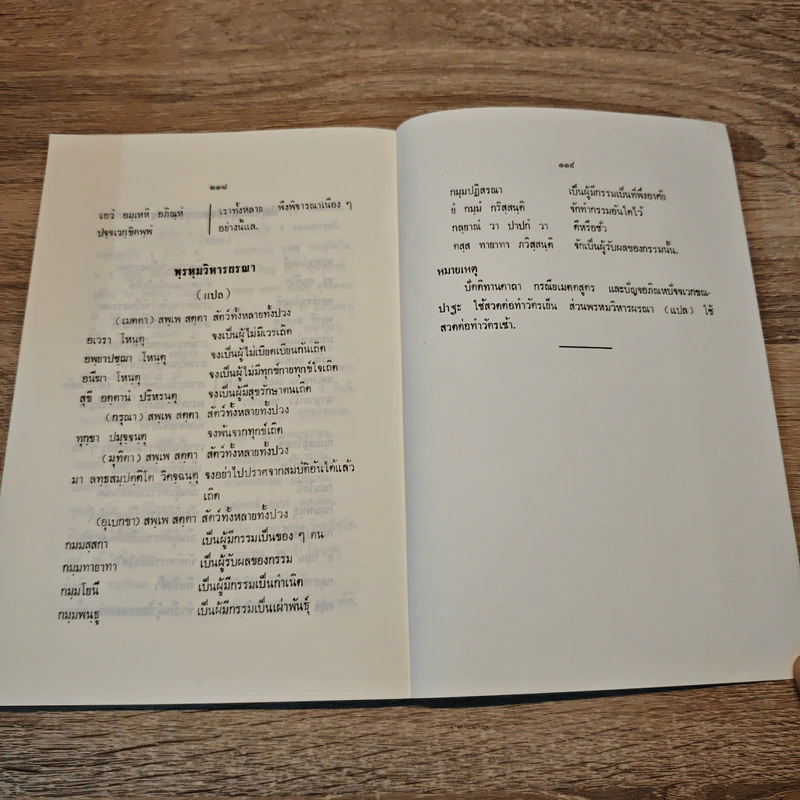 ๑๑๘
เอวํ อมฺเหหิ อภิณฺหํ เราทั้งหลาย พึงพิจารณาเนือง ๆ
ปจฺจเวกฺขิตพฺพํ อย่างนี้แล.
พฺรหฺมวิหารผรณา
(แปล)
(เมตตา) สพฺเพ สตฺตา สัตว์ทั้งหลายทั้งปวง
อเวรา โหนฺตุ จงเป็นผู้ไม่มีเวรเถิด
อพฺยาปชฺฌา โหนฺตุ จงเป็นผู้ไม่เบียดเบียนกันเถิด
อนีฆา โหนฺตุ จงเป็นผู้ไม่มีทุกข์กายทุกข์ใจเถิด
สุขี อตฺตานํ ปริหรนฺตุ จงเป็นผู้มีสุขรักษาตนเถิด
(กรุณา) สพฺเพ สตฺตา สัตว์ทั้งหลายทั้งปวง
ทุกฺขา ปมุจฺจนฺตุ จงพ้นจากทุกข์เถิด
(มุทิตา) สพฺเพ สตฺตา สัตว์ทั้งหลายทั้งปวง
มา ลทฺธสมฺปตฺติโต วิคจฺฉนฺตุ จงอย่าไปปราศจากสมบัติอันได้แล้ว
เถิด
(อุเบกขา) สพฺเพ สตฺตา สัตว์ทั้งหลายทั้งปวง
กมฺมสฺสกา เป็นผู้มีกรรมเป็นของ ๆ ตน
กมฺมทายาทา เป็นผู้รับผลของกรรม
กมฺมโยนี เป็นผู้มีกรรมเป็นกำเนิด
กมฺมพนฺธู เป็นผู้มีกรรมเป็นเผ่าพันธุ์
๑๑๙
กมฺมปฏิสรณา เป็นผู้มีกรรมเป็นที่พึ่งอาศัย
ยํ กมฺมํ กริสฺสนฺติ จักทำกรรมอันใดไว้
กลฺยาณํ วา ปาปกํ วา ดีหรือชั่ว
ตสฺส ทายาทา ภวิสฺสนฺติ จักเป็นผู้รับผลของกรรมนั้น.
หมายเหตุ
ปัตติทานคาถา กรณียเมตตสูตร และบัญจอภิณหปัจจเวกขณ-
ปาฐะ ใช้สวดต่อทำวัตรเย็น ส่วนพรหมวิหารผรณา (แปล) ใช้
สวดต่อทำวัตรเช้า.